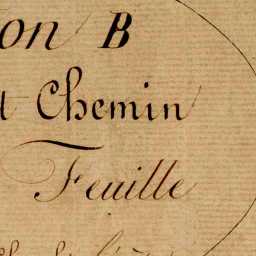 on B
t Chemin
Feuille